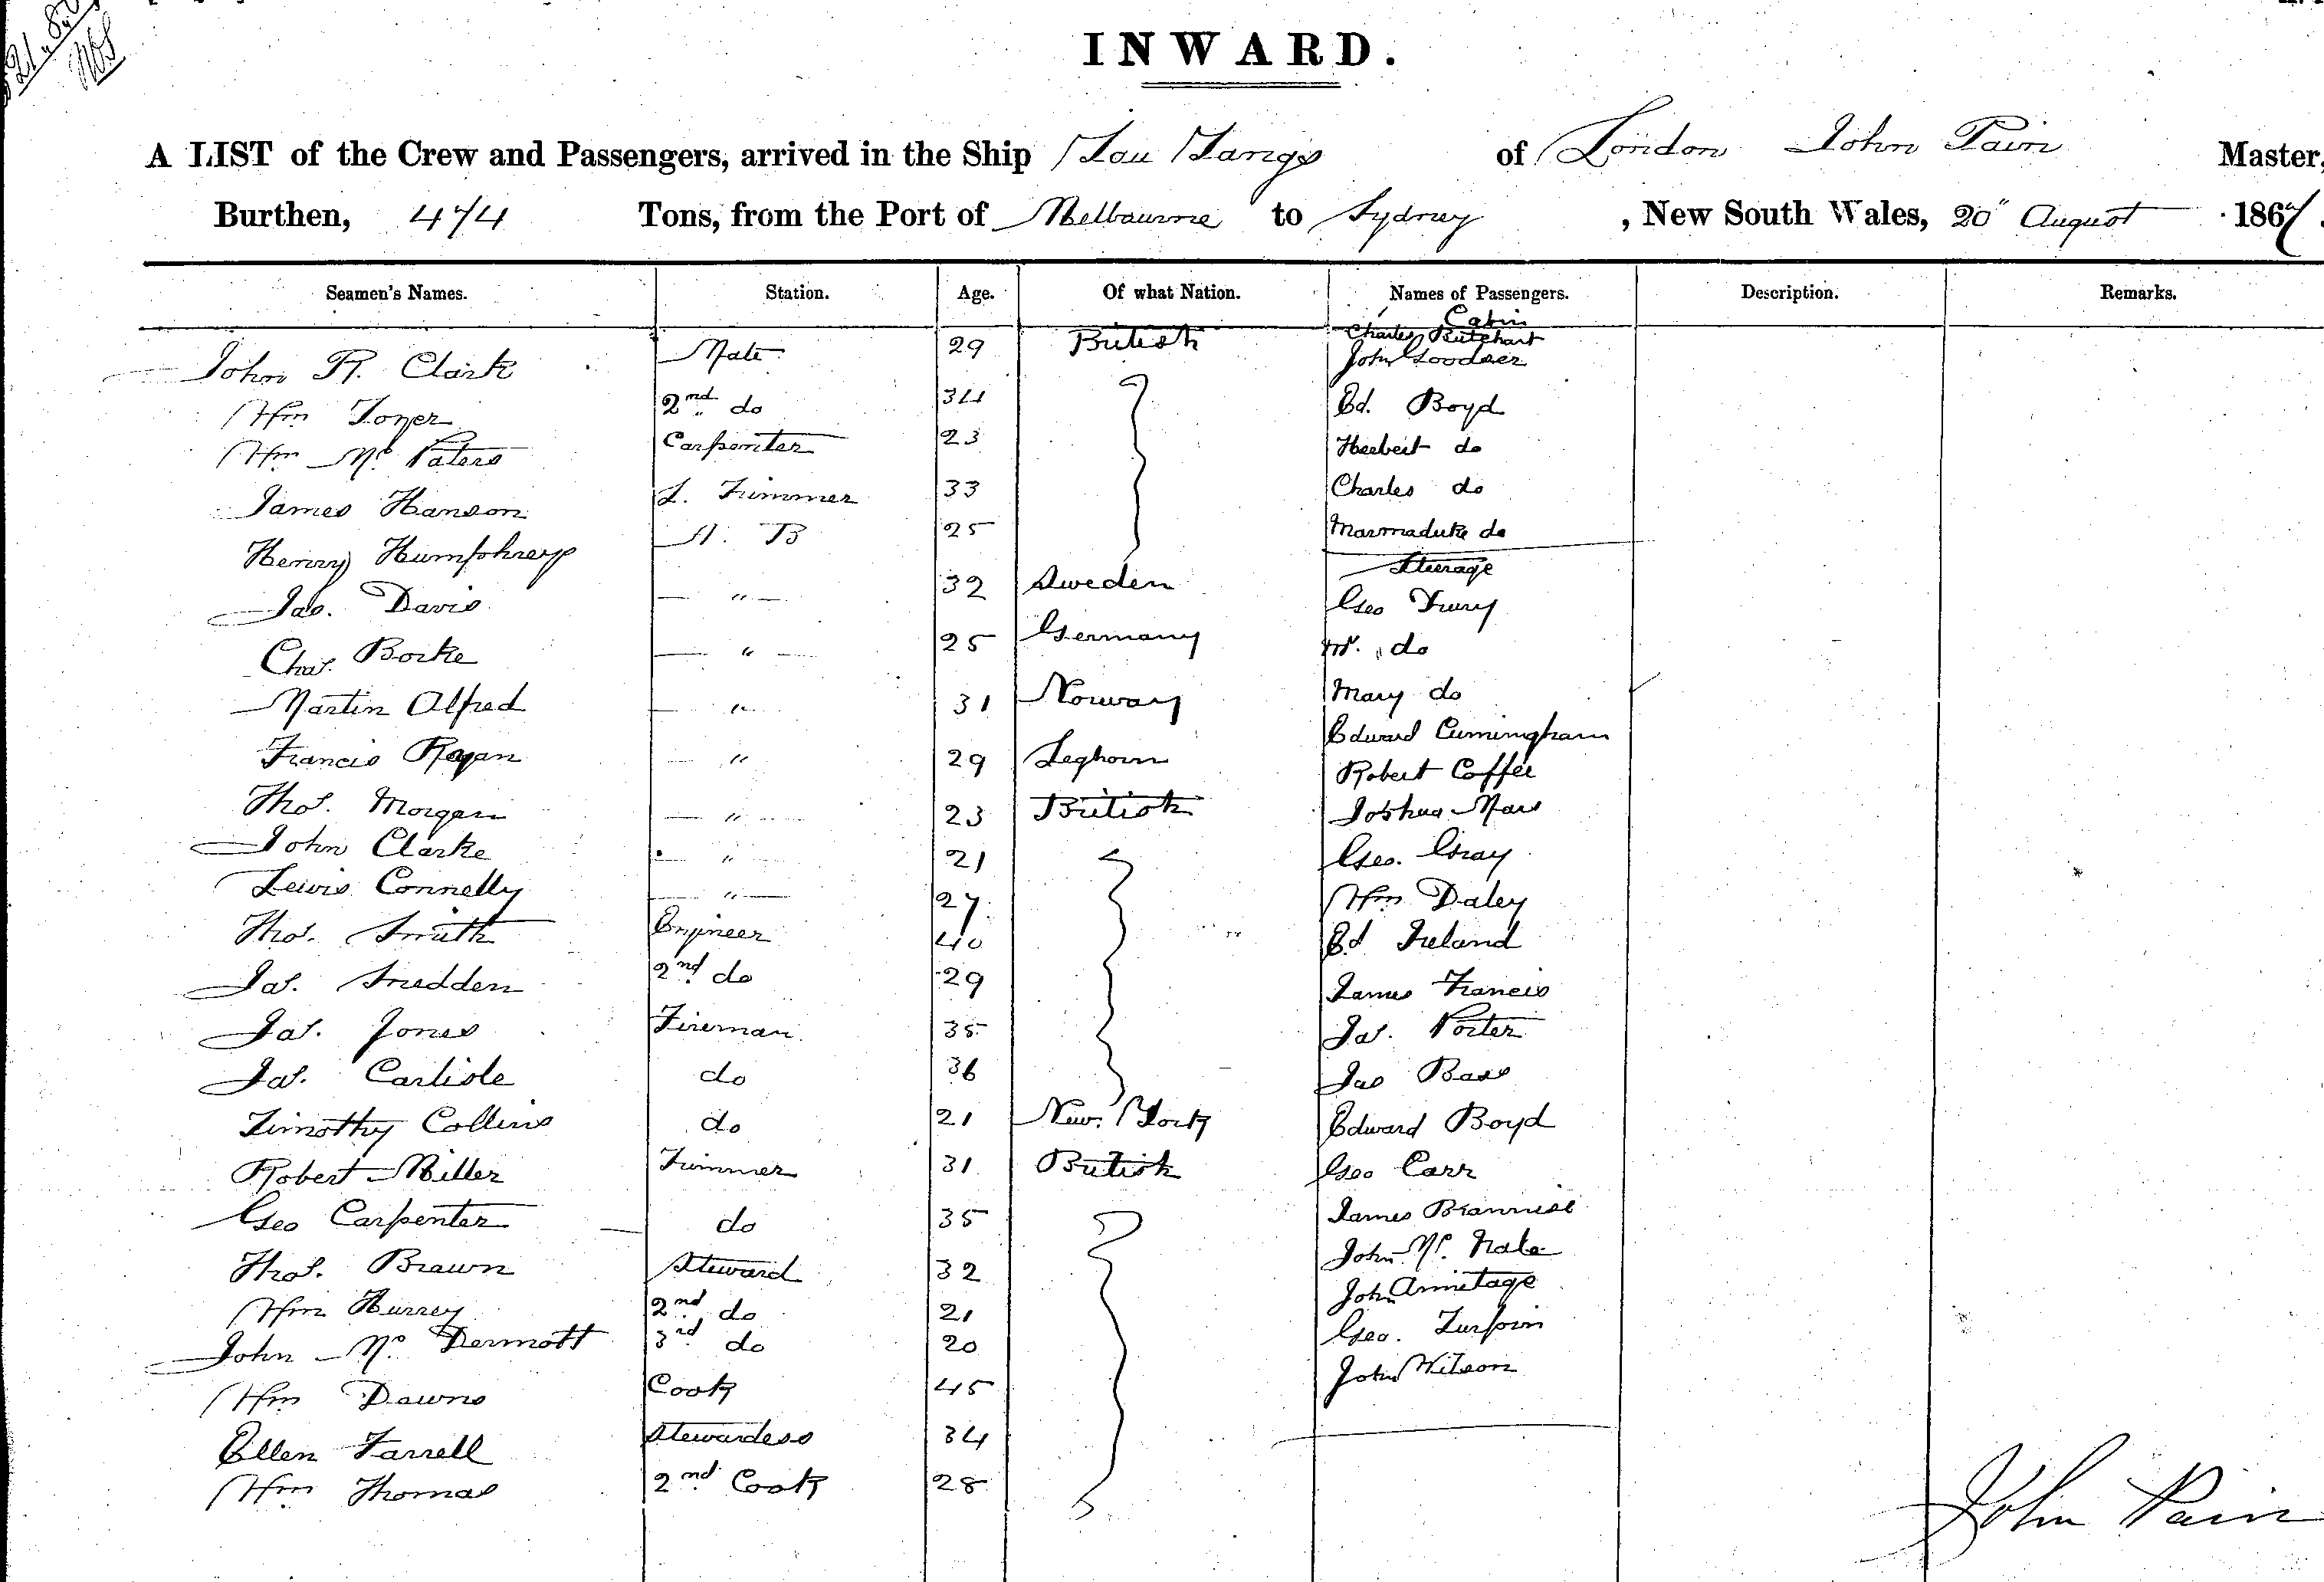 INWARD.
A LIST of the Crew and Passengers, arrived in the Ship You Yangs of London John Pain Master,
Burthen, 474 Tons, from the Port of Melbourne to Sydney, New South Wales, 20" August 1867.
Seamen's Names. Station. Age. Of what Nation. Names of Passengers. Description. Remarks.
Cabin
Charles Butchart
John R. Clark Mate 29 British John
Wm Toner 2nd do 34 Ed. Boyd
Wm Mc Paters Carpenter 23 Herbert do
James Hanson L. Trimmer 33 Charles do
Henry Humphreys A. B 25 Marmaduke do
Steerage
Jas. Davis — " — 32 Sweden Geo Fury
Chas. Borke — " — 25 Germany Mrs. do
Martin Alfred — " 31 Norway Mary do
Francis Regan — " 29 Leghorn Edward Cuningham
Robert Coffee
Thos. Morgan — " — 23 British Joshua
John Clarke — " — 21 Geo. Gray
Lewis Connelly — " — 27 Wm Daley
Thos. Smith Engineer 40 Ed Ireland
Jas. Snedden 2nd do 29 James Francis
Jas. Jones Fireman 35 Jas. Porter
Jas. Carlisle do 36 Jas Bass
Timothy Collins do 21 New York Edward Boyd
Robert Miller Trimmer 31 British Geo Carr
Geo Carpenter do 35 James
John Mc
Thos. Brawn Steward 32 John Armitage
Wm Hurrey 2nd do 21 Geo. Turpin
John Mc Dermott 3rd do 20 John Wilson
Wm Downs Cook 45
Ellen Farrell Stewardess 34
Wm Thomas 2nd Cook 28
John Pain